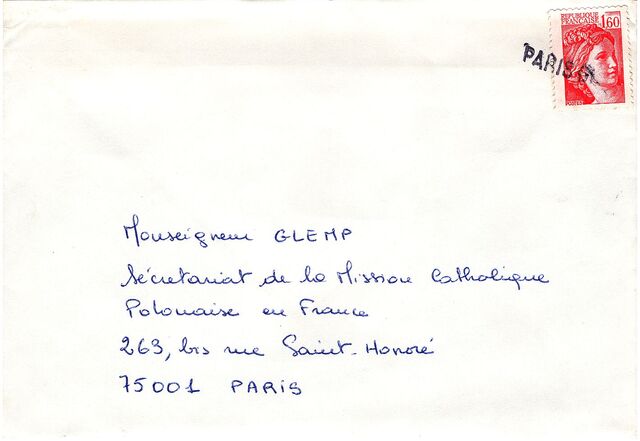 REPUBLIQUE FRANÇAISE 1,60
PARIS
Monseigneur GLEMP
Sécretariat de la Mission Catholique
Polonaise en France
263, bis rue Saint-Honoré
75001 PARIS